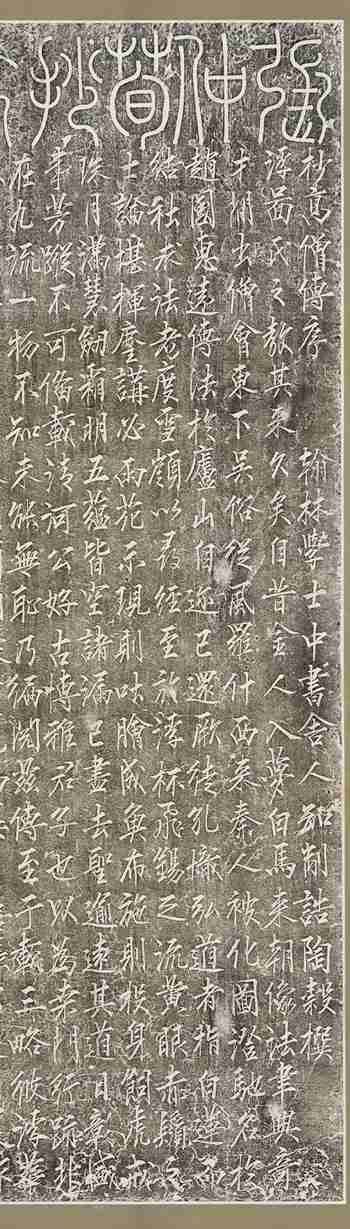 張仲荀抄
抄高僧傳序 翰林學士中書舍人知制誥陶穀撰
浮圖氏之教其來久矣自昔金人入夢白馬來朝像法聿興高
士間出僧會東下吳俗從風羅什西來秦人被化圖澄馳名於
趙國惠遠傳法於廬山自迩已還厥徒孔熾弘道者指白蓮而
結社求法者度雪嶺以尋經至於浮杯飛錫之流黃眼赤鬚之
士論堪揮麈講必雨花示現則吐膾成魚布施則投身飼虎戒
珠月滿慧劍霜明五蘊皆空諸漏已盡去聖逾遠其道日彰
事芳蹤不可備載清河公好古博雅君子也以為桑門行
在九流一物不知未能無恥乃徧閱茲傳至于三略